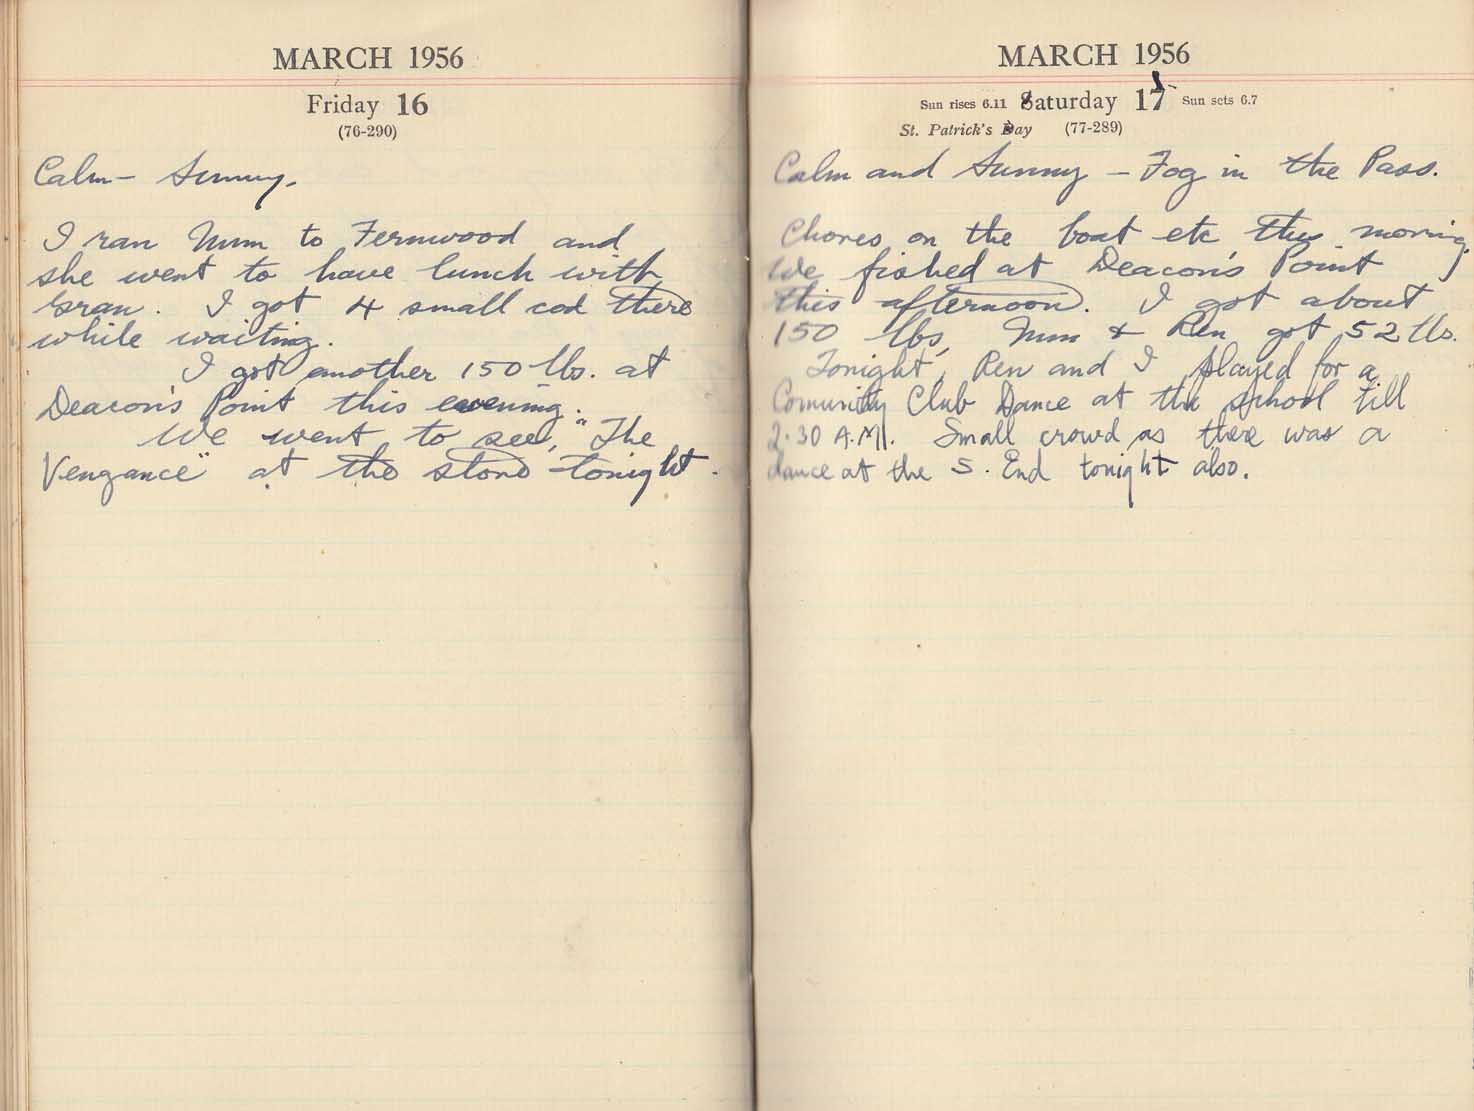 MARCH 1956
Friday 16
(76-290)
Calm — Sunny.
I ran Mum to Fernwood and
she went to have lunch with
Gran. I got 4 small cod there
while waiting.
I got another 150 lbs. at
Deacon's Point this evening.
We went to see, "The
Vengance" at the store tonight.
MARCH 1956
Sun rises 6.11 Saturday 17 Sun sets 6.7
St. Patrick's Day (77-289)
Calm and Sunny — Fog in the Pass.
Chores on the boat etc this morning.
We fished at Deacon's Point
this afternoon. I got about
150 lbs, Mum & Ren got 52 lbs.
Tonight, Ren and I played for a
Comunity Club Dance at the school till
2.30 A.M. Small crowd as there was a
dance at the S. End tonight also.